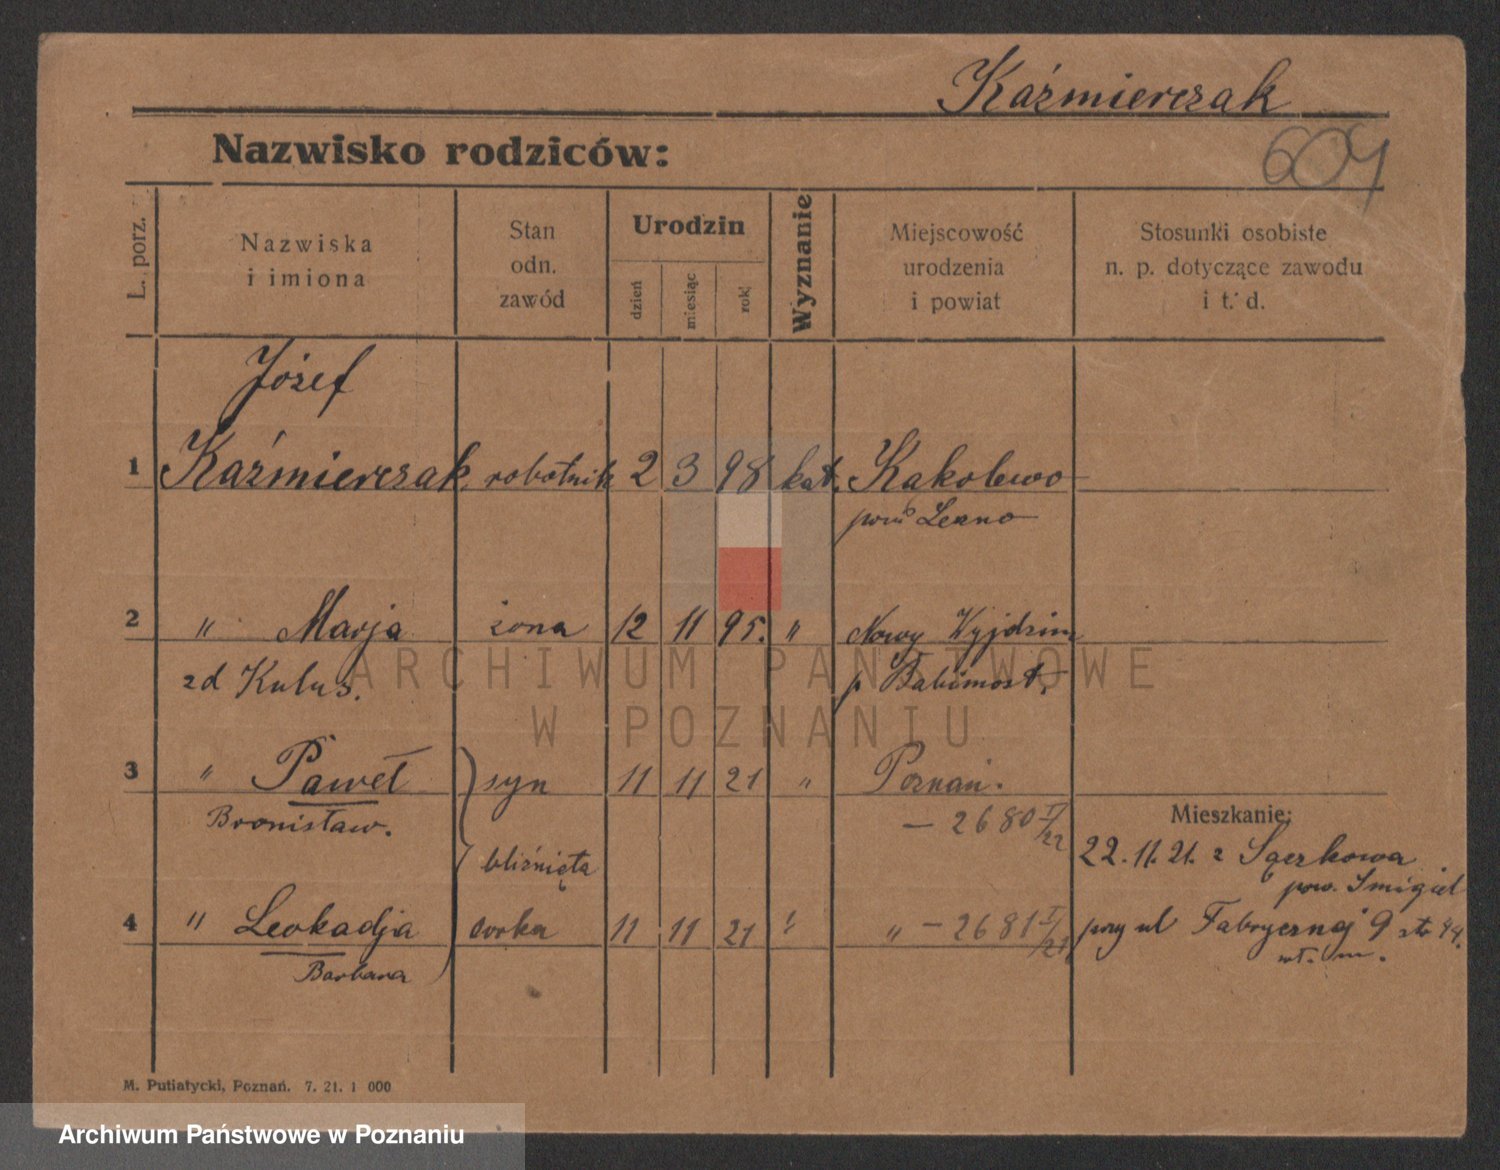 Kaźmierczak
Nazwisko rodziców:
604
L. porz.
Nazwiska
i imiona
Stan
odn.
zawód
Urodzin
dzień
miesiąc
rok
Wyznanie
Miejscowość
urodzenia
i powiat
Stosunki osobiste
n. p. dotyczące zawodu
i t. d.
Józef
1 Kaźmierczak robotnik 2 3 98 kat. Kąkolewo
pow Leszno
2 " Marja żona 12 11 95. " Nowy Wyjdzim
zd Kulus. p Babimost.
3 " Paweł syn 11 11 21 " Poznań.
Bronisław. — 2680 I/22
Mieszkanie:
bliźnięta
22.11.21. z Sączkowa
pow. Śmigiel
4 " Leokadja córka 11 11 21 " " — 2681 I/21 przy ul Fabrycznej 9 str 44.
Barbara wł. m.
M. Putiatycki, Poznań. 7. 21. 1 000
ARCHIWUM PAŃSTWOWE
W POZNANIU
Archiwum Państwowe w Poznaniu